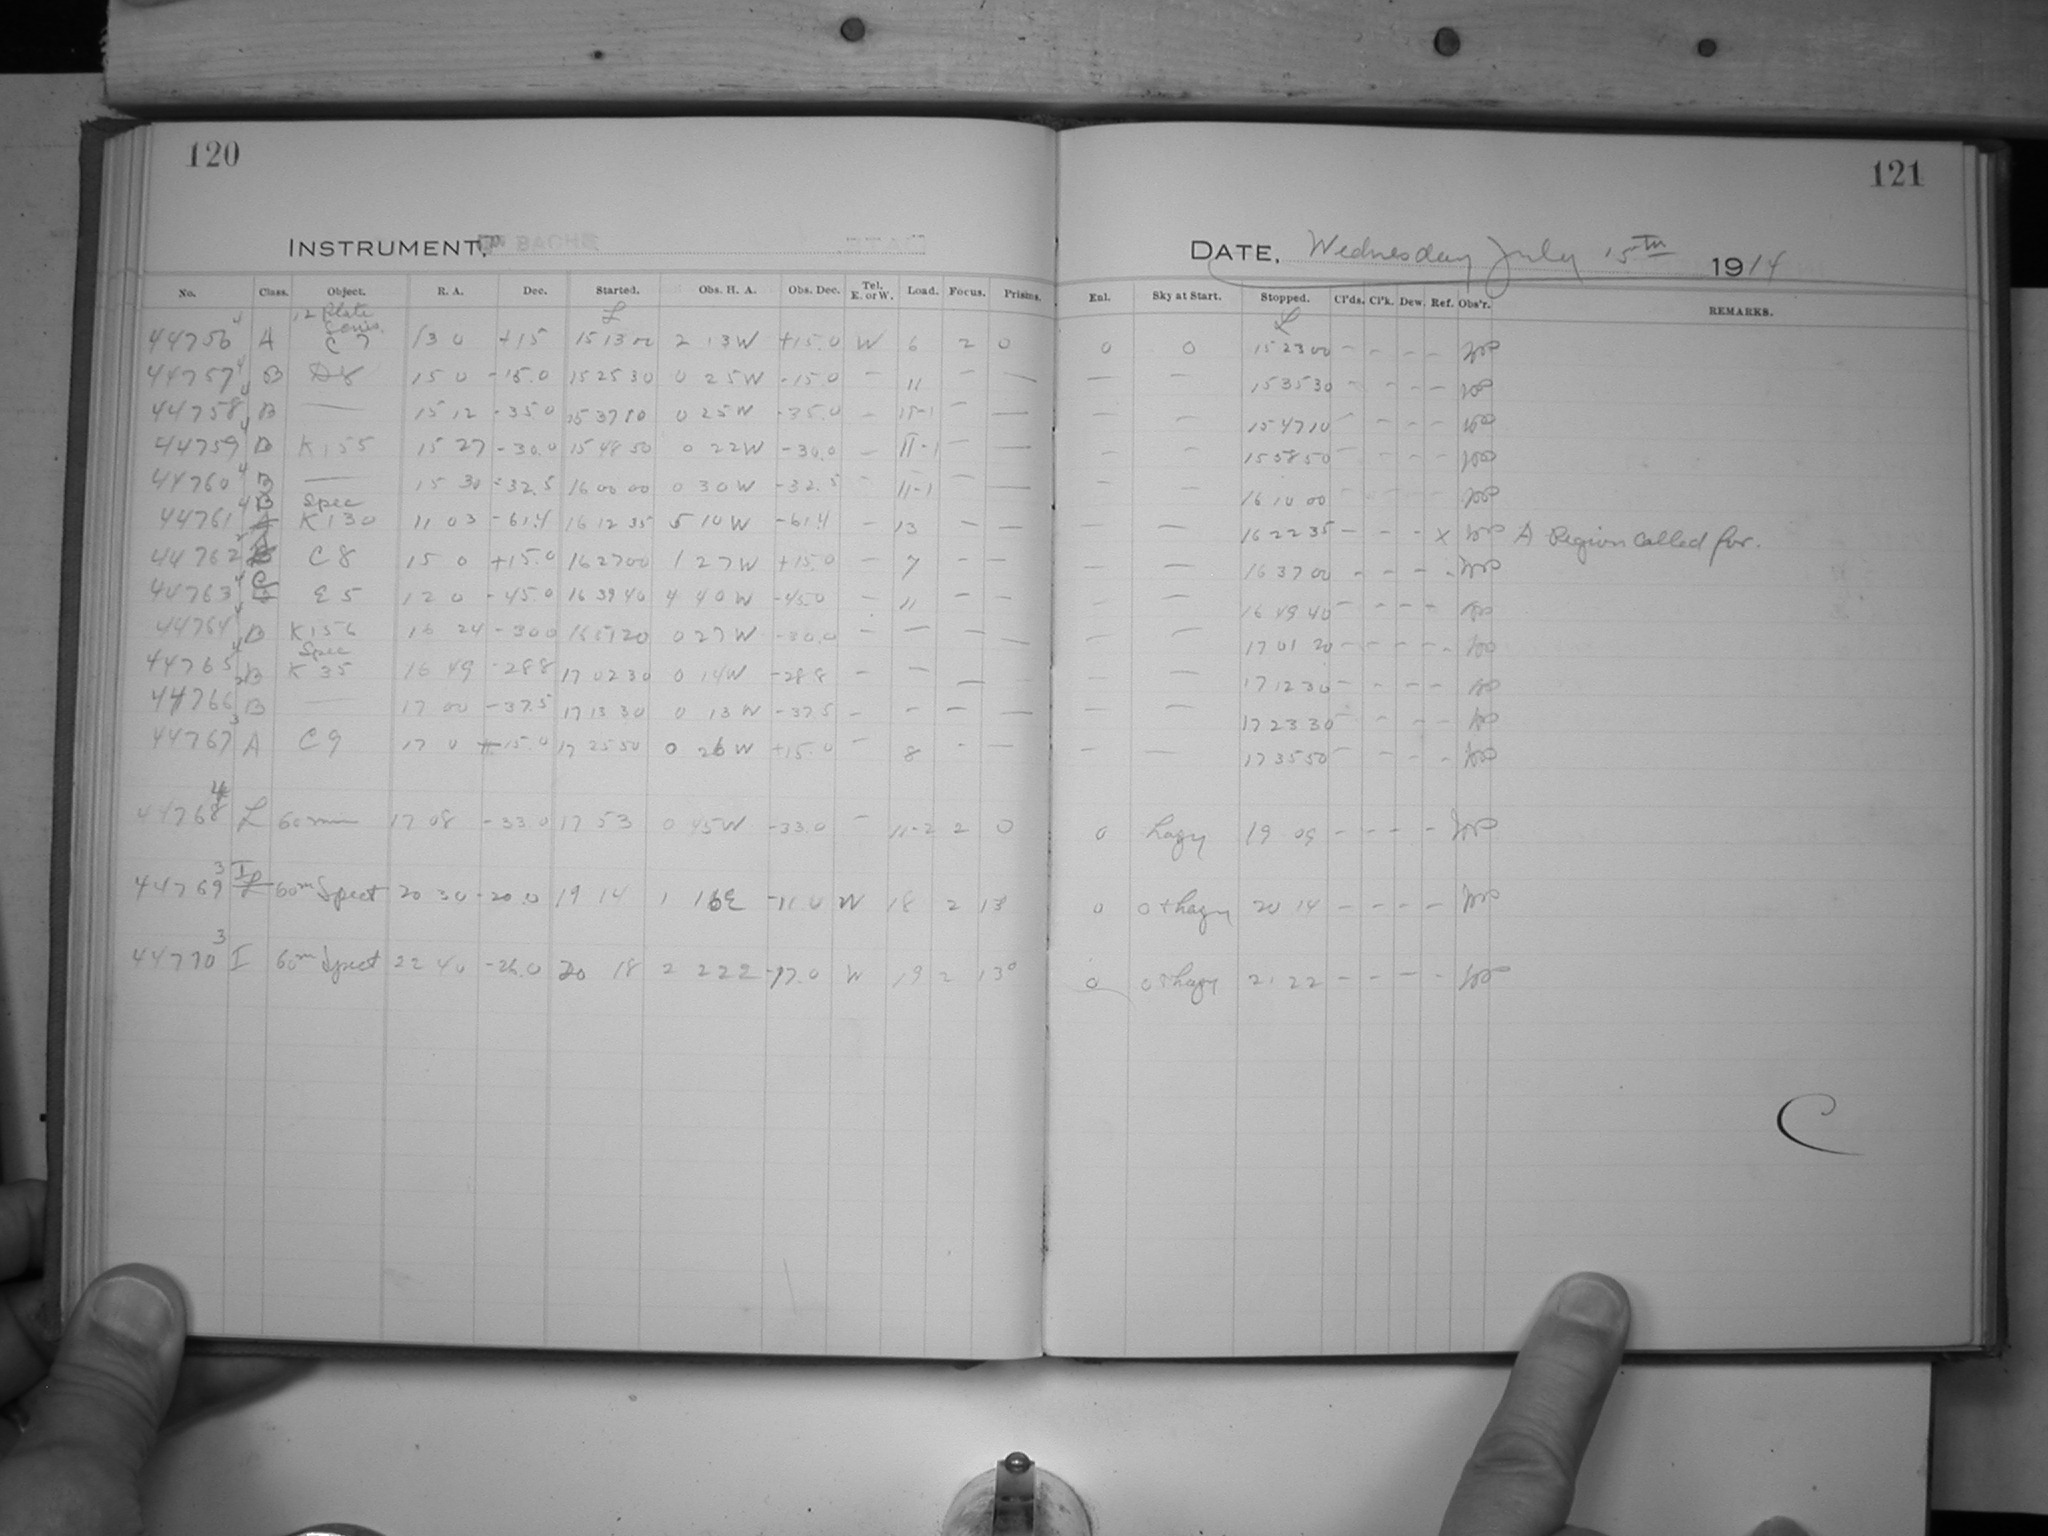 120
INSTRUMENT, BACHE
No. Class. Object. R. A. Dec. Started. Obs. H. A. Obs. Dec. Tel. E. or W. Load. Focus. Prisms.
12 Plate Series L
44756 4 A C 7 13 0 +15 15 13 00 2 13 W +15.0 W 6 2 0
44757 4 B D8 15 0 -15.0 15 25 30 0 25 W -15.0 - 11 - -
44758 4 B — 15 12 -35.0 15 37 10 0 25 W -35.0 - 11-1 - -
44759 4 B K155 15 27 -30.0 15 48 50 0 22 W -30.0 - 11-1 - -
44760 4 B — 15 30 -32.5 16 00 00 0 30 W -32.5 - 11-1 - -
Spec
44761 4 B K130 11 03 -61.4 16 12 35 5 10 W -61.4 - 13 - -
44762 2 A C8 15 0 +15.0 16 27 00 1 27 W +15.0 - 7 - -
44763 4 C E5 12 0 -45.0 16 39 40 4 40 W -45.0 - 11 - -
44764 4 B K156 16 24 -30.0 16 51 20 0 27 W -30.0 - - - -
Spec
44765 4 B K 35 16 49 -28.8 17 02 30 0 14 W -28.8 - - - -
44766 2 B — 17 00 -37.5 17 13 30 0 13 W -37.5 - - - -
44767 3 A C9 17 0 +15.0 17 25 50 0 26 W +15.0 - 8 - -
44768 4 L 60 min 17 08 -33.0 17 53 0 45 W -33.0 - 11-2 2 0
44769 3 I 60m Spect 20 30 -20.0 19 14 1 16 E -11.0 W 18 2 13°
44770 3 I 60m Spect 22 40 -26.0 20 18 2 22 E -17.0 W 19 2 13°
121
DATE, Wednesday July 15th 1914
Enl. Sky at Start. Stopped. Cl'ds. Cl'k. Dew. Ref. Obs'r. REMARKS.
L
0 0 15 23 00 - - - -
- - 15 35 30 - - - -
- - 15 47 10 - - - -
- - 15 58 50 - - - -
- - 16 10 00 - - - -
- - 16 22 35 - - - X A Region called for.
- - 16 37 00 - - - -
- - 16 49 40 - - - -
- - 17 01 20 - - - -
- - 17 12 30 - - - -
- - 17 23 30 - - - -
- - 17 35 50 - - - -
0 hazy 19 09 - - - -
0 0 + hazy 20 14 - - - -
0 0 + hazy 21 22 - - - -
C